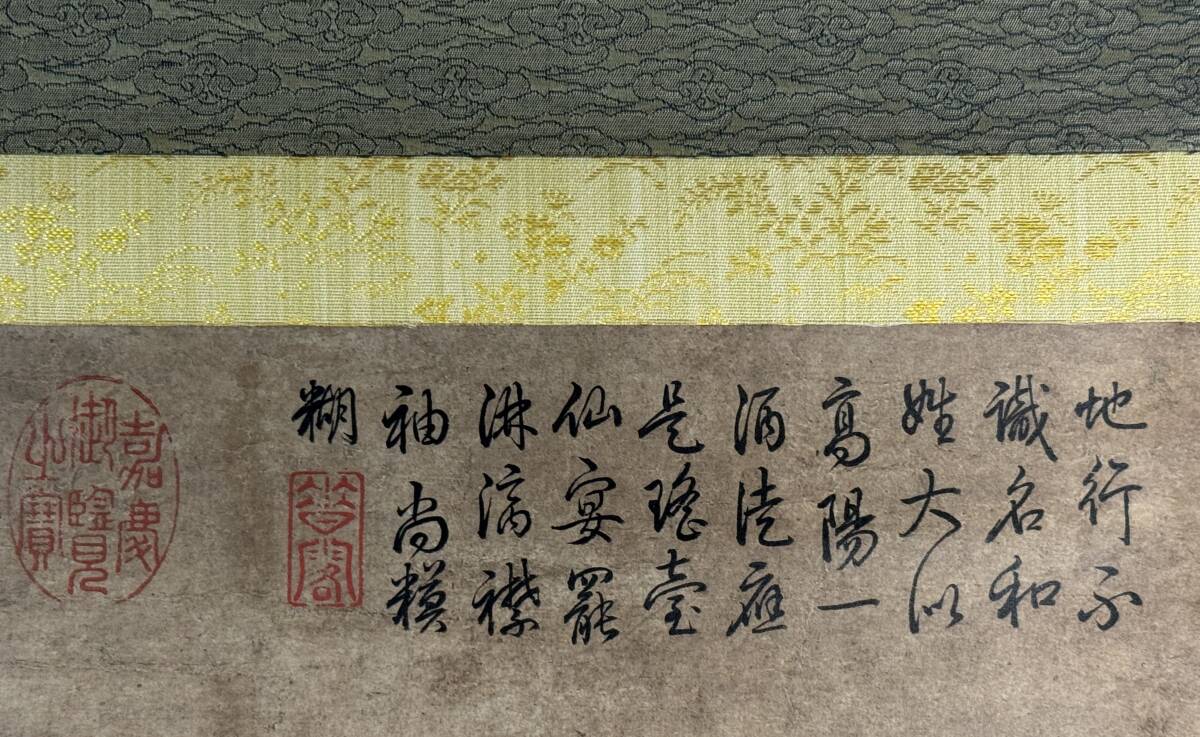 地行不
識名和
姓大似
高陽一
酒徒應
是瑤臺
仙宴罷
淋漓襟
袖尚糢
糊
嘉慶
御覽
之寶